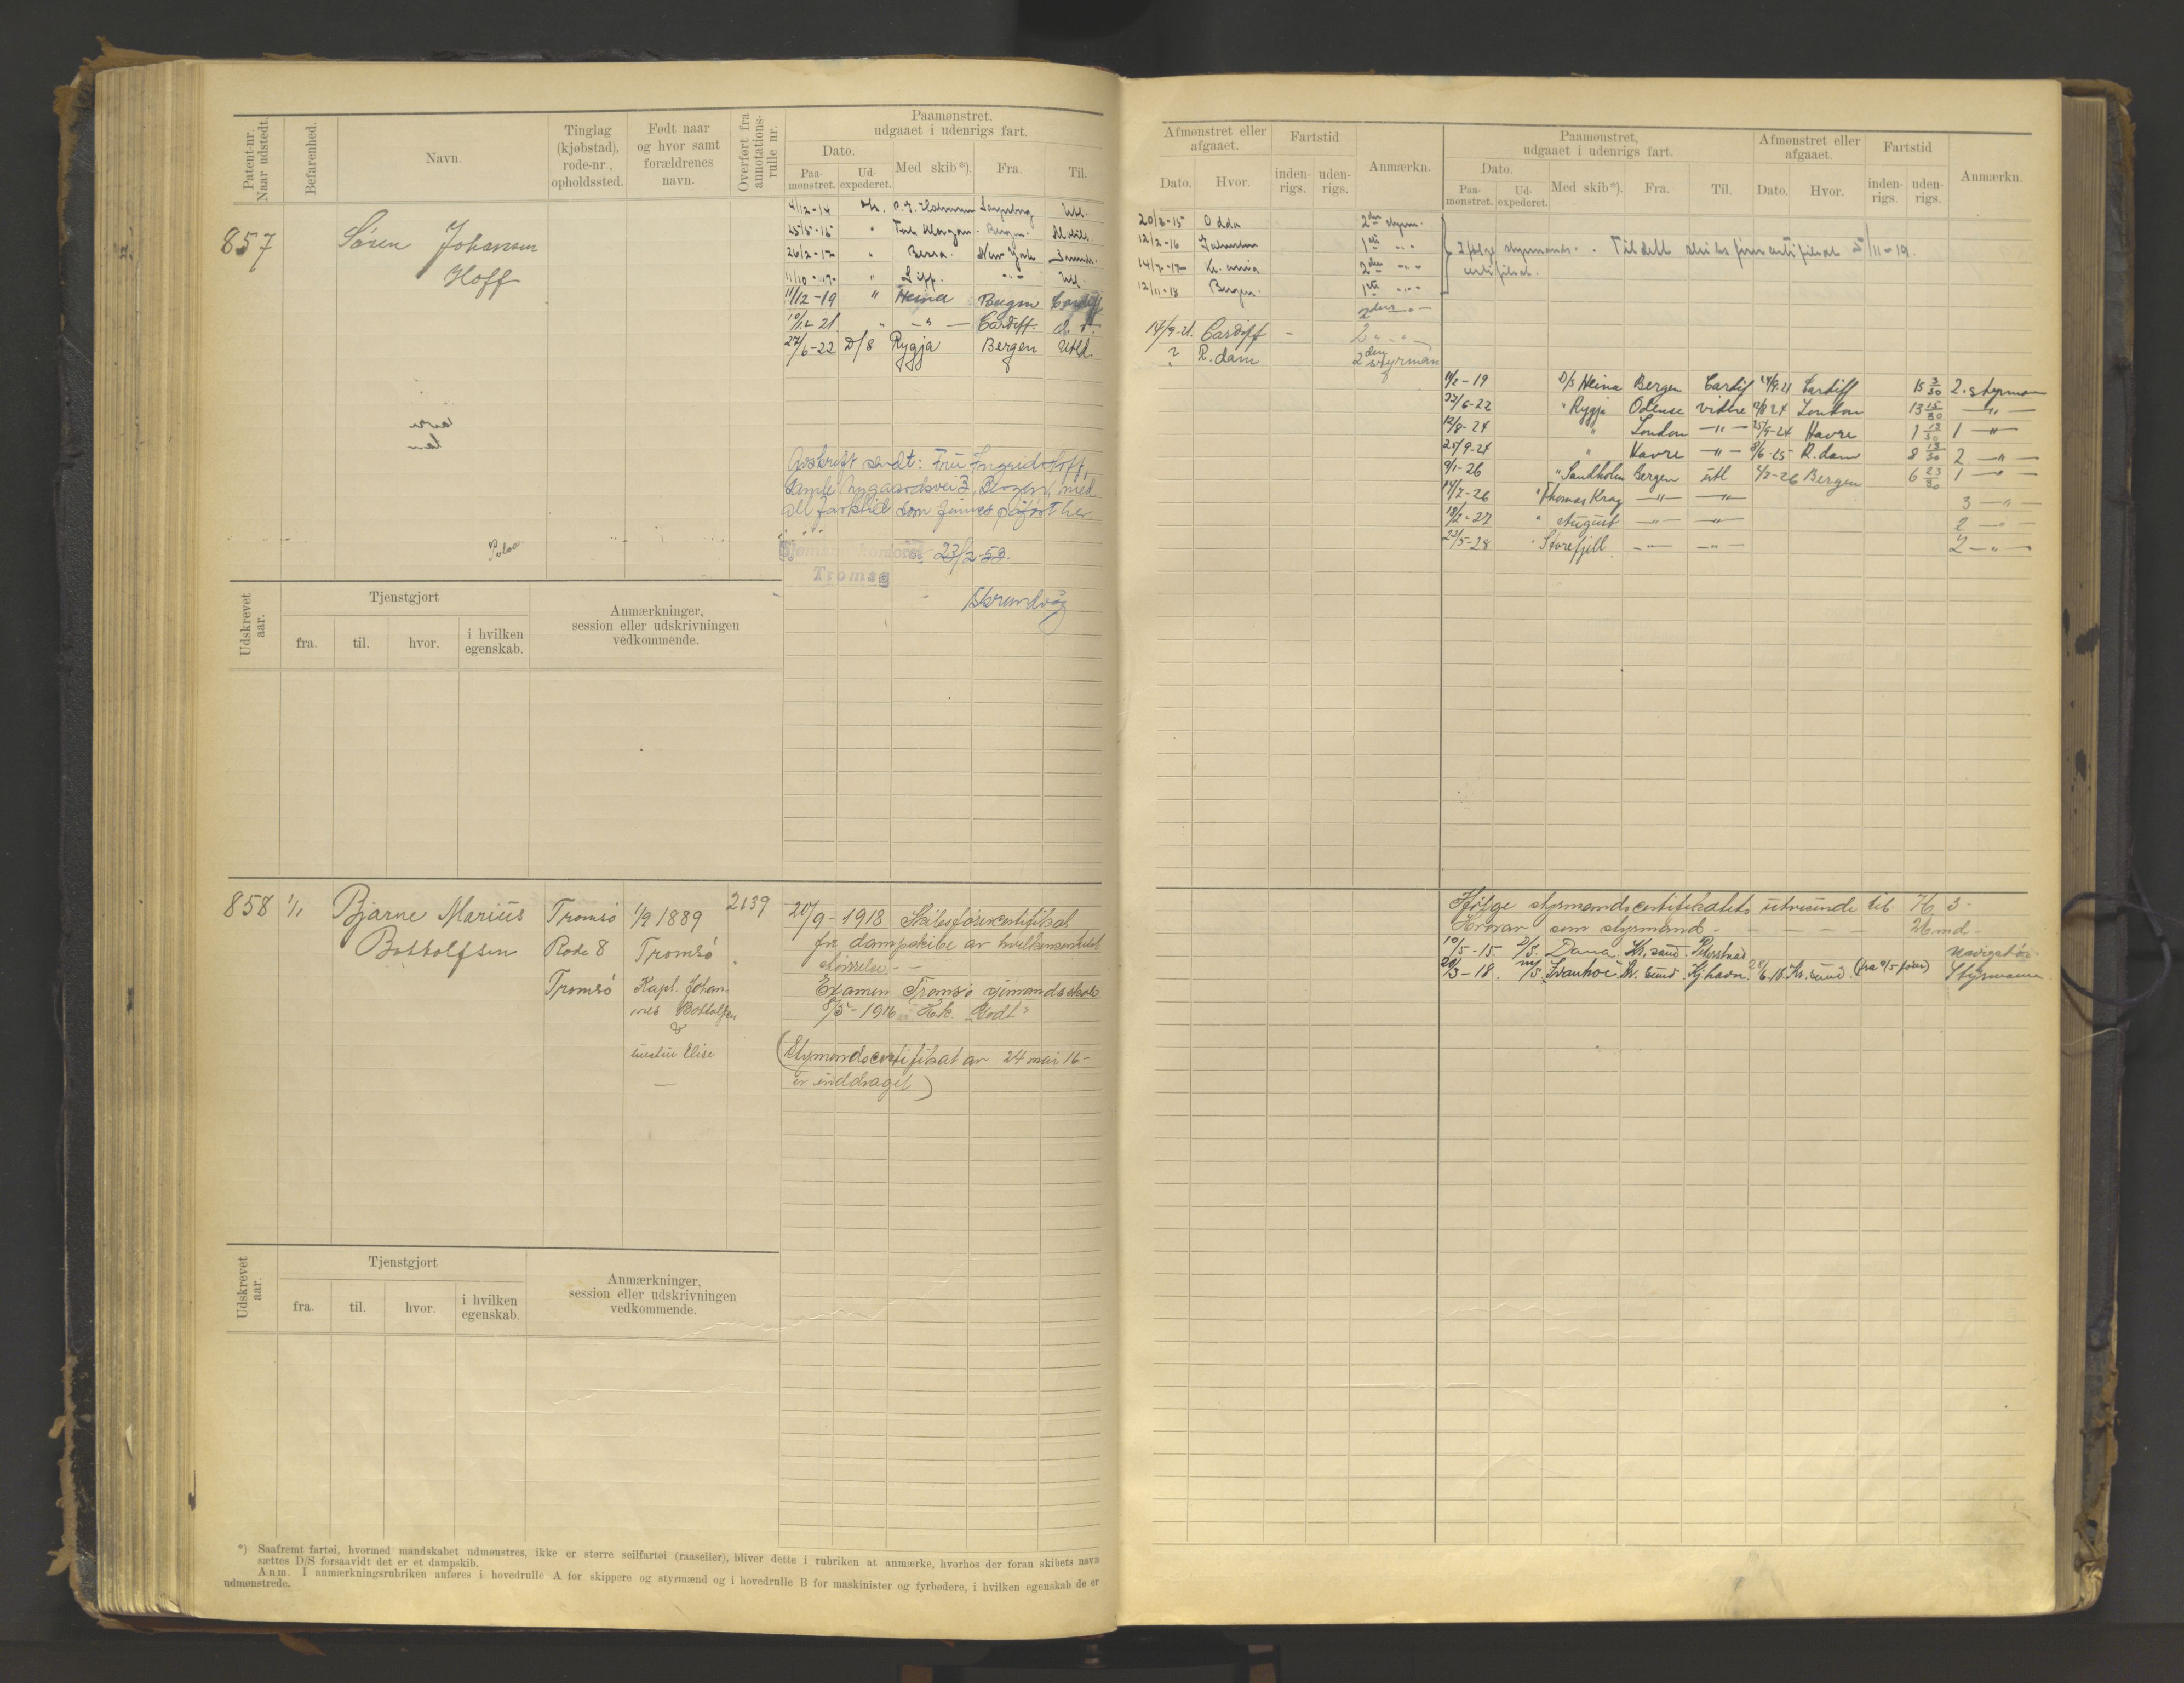 Patent-nr. Naar udstedt.
Befarenhed.
Navn.
Tinglag (kjøbstad), rode-nr., opholdssted.
Født naar og hvor samt forældrenes navn.
Overført fra annotations-rulle nr.
Paamønstret, udgaaet i udenrigs fart.
Dato.
Paa-mønstret.
Ud-expederet.
Med skib*).
Fra.
Til.
857
Søren Johansen
Hoff
4/12-14
26/2-17 Berra. New York
11/10-17
11/12-19 " Heina Bergen Cardiff
10/12-21 " -"- Cardiff
27/6-22 D/S Rygja Bergen Utld.
Avskrift sendt: Fru Ingrid Hoff,
Gamle Nygaardsvei 3, Bergen, med
all fartstid som finnes påført her
23/2-53.
Tromsø
Udskrevet aar.
Tjenstgjort
fra.
til.
hvor.
i hvilken egenskab.
Anmærkninger, session eller udskrivningen vedkommende.
858 1/1 Bjarne Marius Tromsø 1/9 1889 2139
Bottolfsen Rode 8 Tromsø
Tromsø Kapt. Johan-
nes Bottolfsen
&
hustru Elise
20/9-1918 Skibsførercertifikat
for dampskibe av hvilkensomhelst
størrelse - -
Examen Tromsø sjømandsskole
8/5-1916 Hk. "Godt"
(Styrmandscertifikat av 24 mai 16-
er inddraget)
Udskrevet aar.
Tjenstgjort
fra.
til.
hvor.
i hvilken egenskab.
Anmærkninger, session eller udskrivningen vedkommende.
*) Saafremt fartøi, hvormed mandskabet udmønstres, ikke er større seilfartøi (raaseiler), bliver dette i rubriken at anmærke, hvorhos der foran skibets navn
sættes D/S forsaavidt det er et dampskib.
Anm. I anmærkningsrubriken anføres i hovedrulle A for skippere og styrmænd og i hovedrulle B for maskinister og fyrbødere, i hvilken egenskab de er
udmønstrede.
Afmønstret eller afgaaet.
Dato.
Hvor.
Fartstid
inden-rigs.
uden-rigs.
Anmærkn.
Paamønstret, udgaaet i udenrigs fart.
Dato.
Paa-mønstret.
Ud-expederet.
Med skib*).
Fra.
Til.
Afmønstret eller afgaaet.
Dato.
Hvor.
Fartstid
inden-rigs.
uden-rigs.
Anmærkn.
20/3-15 Odda 2den styrm.
12/2-16 1ste " "
14/7-17 Kr.ania 2den " "
12/11-18 Bergen. 1ste " "
2den " -
14/9-21. Cardiff - 2 " "
? R.dam 2den styrman
Ifølge styrmands-
certifikat.
Tildelt skibsførercertifikat 5/11-19.
11/2-19 D/S Heina Bergen Cardif 14/9 21 Cardiff 15 3/30 2. styrman
27/6-22 " Rygja Odense vidre 12/8 24 London 13 15/30 -"-
12/8-24 " London -"- 25/9-24 Havre 1 13/30 1 -"-
25/9-24 " Havre -"- 8/6-25 R.dam 8 13/30 2 -"-
9/1-26 " Sandholm Bergen utl 2/8-26 Bergen 6 23/30 1 -"-
14/7-26 " Thomas Krag -"- -"- 3 -"-
18/2-27 " August -"- -"- 2 -"-
22/5-28 " Storefjell -"- -"- 2 -"-
Ifølge styrmandscertifikatets utvisende til 76 3-
Herav som styrmand - - - - - 26 md -
10/5-15 D/S. Dana Kr.sand Navigatør
20/3-18. M/S Ivanhoe Kr. sund Kj.havn 28/6.18. Kr.sund. Styrmann